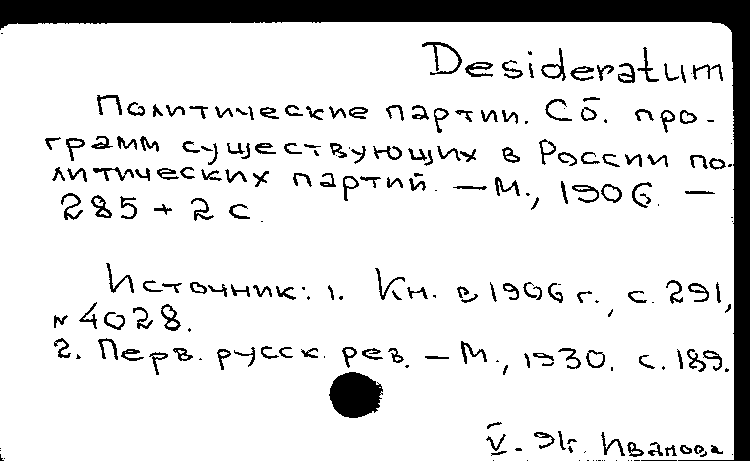 Desideratum
Политические партии. Сб. про-
грамм существующих в России по-
литических партий. — М., 1906. —
285 + 2 с.
Источник: 1. Кн. в 1906 г., с. 291,
№ 4028.
2. Перв. русск. рев. — М., 1930. с. 189.
V. 91г. Иванова